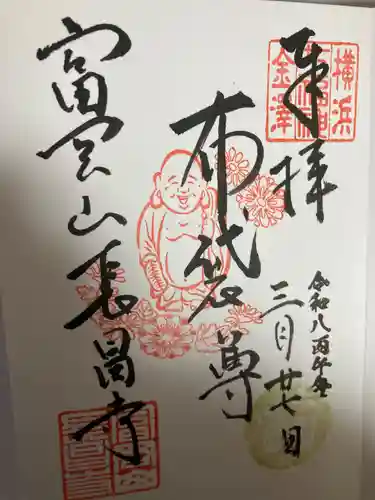 奉拝
横浜
金澤
令和八丙午年
三月廿七日
布袋尊
富岡山長昌寺